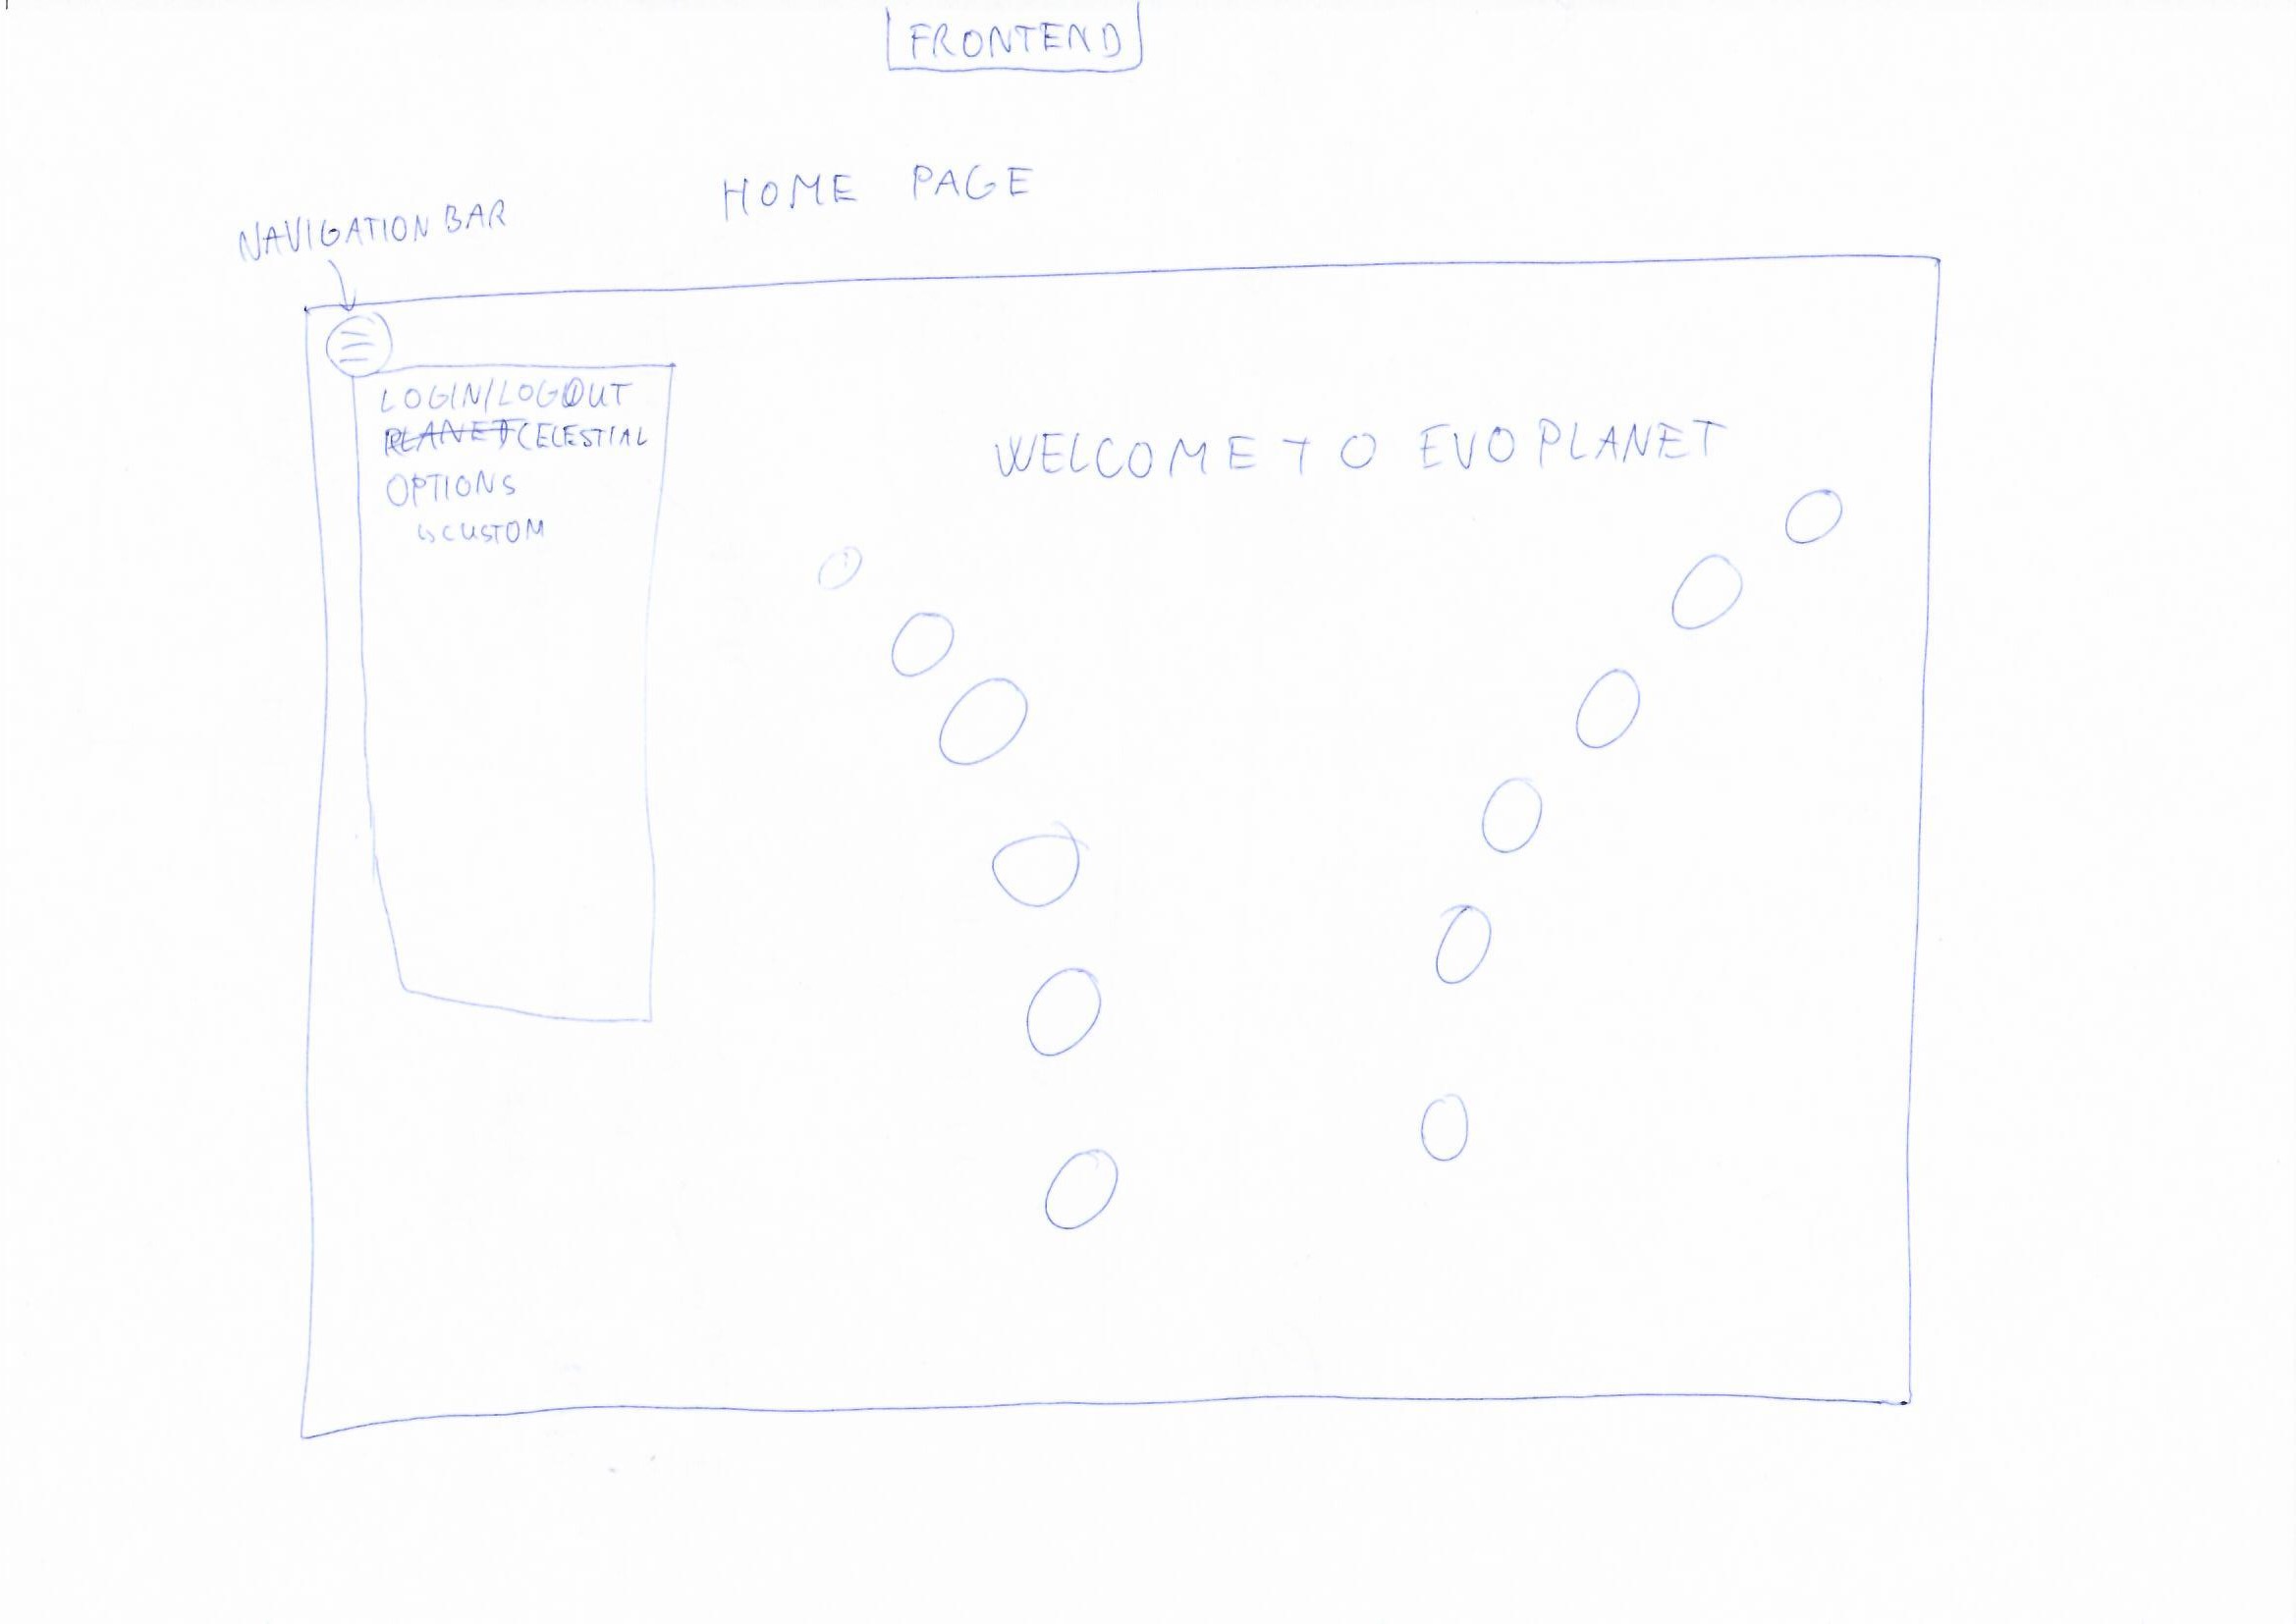 FRONTEND
HOME PAGE
NAVIGATION BAR
LOGIN/LOGOUT
PLANET CELESTIAL
OPTIONS
↳ CUSTOM
WELCOME TO EVOPLANET